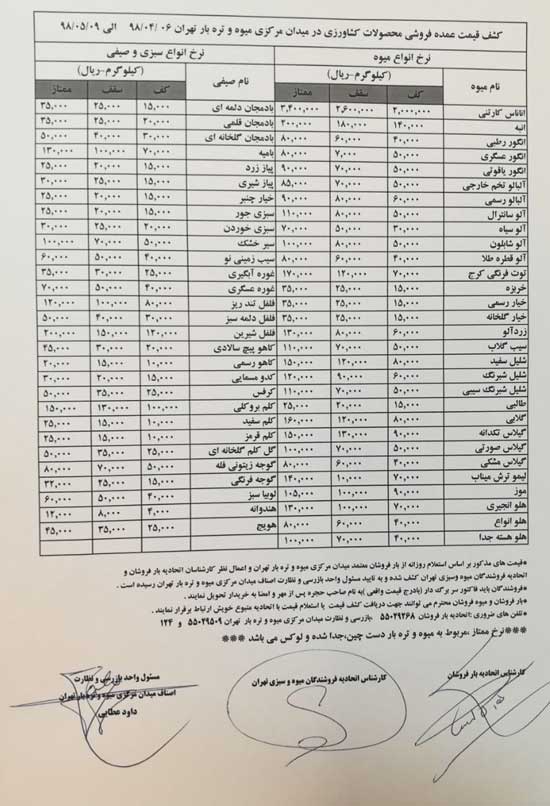 کشف قیمت عمده فروشی محصولات کشاورزی در میدان مرکزی میوه و تره بار تهران ۹۸/۰۴/۰۶ الی ۹۸/۰۵/۰۹
نرخ انواع میوه نرخ انواع سبزی و صیفی
نام میوه (کیلوگرم-ریال) نام صیفی (کیلوگرم-ریال)
کف سقف ممتاز کف سقف ممتاز
آناناس کارتنی ۲,۰۰۰,۰۰۰ ۲,۶۰۰,۰۰۰ ۳,۴۰۰,۰۰۰ بادمجان دلمه ای ۱۵,۰۰۰ ۲۵,۰۰۰ ۳۵,۰۰۰
انبه ۱۴۰,۰۰۰ ۱۸۰,۰۰۰ ۲۰۰,۰۰۰ بادمجان قلمی ۲۰,۰۰۰ ۲۵,۰۰۰ ۳۵,۰۰۰
انگور رطبی ۴۰,۰۰۰ ۶۰,۰۰۰ ۸۰,۰۰۰ بادمجان گلخانه ای ۳۰,۰۰۰ ۴۰,۰۰۰ ۵۰,۰۰۰
انگور عسگری ۵۰,۰۰۰ ۷,۰۰۰ ۸۰,۰۰۰ بامیه ۷۰,۰۰۰ ۱۰۰,۰۰۰ ۱۳۰,۰۰۰
انگور یاقوتی ۵۰,۰۰۰ ۷۰,۰۰۰ ۹۰,۰۰۰ پیاز زرد ۱۵,۰۰۰ ۲۰,۰۰۰ ۲۵,۰۰۰
آلبالو تخم خارجی ۵۰,۰۰۰ ۷۰,۰۰۰ ۸۵,۰۰۰ پیاز شیری ۱۵,۰۰۰ ۲۵,۰۰۰ ۳۰,۰۰۰
آلبالو رسمی ۶۰,۰۰۰ ۸۰,۰۰۰ ۹۰,۰۰۰ خیار چنبر ۱۵,۰۰۰ ۲۰,۰۰۰ ۲۵,۰۰۰
آلو سانترال ۵۰,۰۰۰ ۸۰,۰۰۰ ۱۱۰,۰۰۰ سبزی جور ۱۵,۰۰۰ ۲۰,۰۰۰ ۲۵,۰۰۰
آلو سیاه ۳۰,۰۰۰ ۵۰,۰۰۰ ۷۰,۰۰۰ سبزی خوردن ۲۰,۰۰۰ ۲۵,۰۰۰ ۳۰,۰۰۰
آلو شابلون ۵۰,۰۰۰ ۸۰,۰۰۰ ۱۰۰,۰۰۰ سیر خشک ۵۰,۰۰۰ ۷۰,۰۰۰ ۱۰۰,۰۰۰
آلو قطره طلا ۴۰,۰۰۰ ۶۰,۰۰۰ ۸۰,۰۰۰ سیب زمینی نو ۴۰,۰۰۰ ۵۰,۰۰۰ ۶۰,۰۰۰
توت فرنگی کرج ۷۰,۰۰۰ ۱۲۰,۰۰۰ ۱۷۰,۰۰۰ غوره آبگیری ۲۵,۰۰۰ ۳۰,۰۰۰ ۳۵,۰۰۰
خربزه ۱۵,۰۰۰ ۲۵,۰۰۰ ۳۵,۰۰۰ غوره عسگری ۴۰,۰۰۰ ۵۰,۰۰۰ ۷۰,۰۰۰
خیار رسمی ۱۵,۰۰۰ ۲۵,۰۰۰ ۳۵,۰۰۰ فلفل تند ریز ۸۰,۰۰۰ ۱۰۰,۰۰۰ ۱۲۰,۰۰۰
خیار گلخانه ۱۵,۰۰۰ ۲۵,۰۰۰ ۳۵,۰۰۰ فلفل دلمه سبز ۳۰,۰۰۰ ۴۰,۰۰۰ ۵۰,۰۰۰
زردآلو ۶۰,۰۰۰ ۸۰,۰۰۰ ۱۳۰,۰۰۰ فلفل شیرین ۱۲۰,۰۰۰ ۱۵۰,۰۰۰ ۲۰۰,۰۰۰
سیب گلاب ۵۰,۰۰۰ ۷۰,۰۰۰ ۱۱۰,۰۰۰ کاهو پیچ سالادی ۲۰,۰۰۰ ۳۰,۰۰۰ ۴۵,۰۰۰
شلیل سفید ۸۰,۰۰۰ ۱۲۰,۰۰۰ ۱۵۰,۰۰۰ کاهو رسمی ۱۰,۰۰۰ ۱۵,۰۰۰ ۲۰,۰۰۰
شلیل شبرنگ ۶۰,۰۰۰ ۹۰,۰۰۰ ۱۲۰,۰۰۰ کدو مسمایی ۱۵,۰۰۰ ۲۰,۰۰۰ ۳۰,۰۰۰
شلیل شبرنگ سیبی ۵۰,۰۰۰ ۷۰,۰۰۰ ۱۱۰,۰۰۰ کرفس ۲۵,۰۰۰ ۳۵,۰۰۰ ۵۰,۰۰۰
طالبی ۱۵,۰۰۰ ۲۰,۰۰۰ ۲۵,۰۰۰ کلم بروکلی ۱۰۰,۰۰۰ ۱۳۰,۰۰۰ ۱۵۰,۰۰۰
گلابی ۸۰,۰۰۰ ۱۲۰,۰۰۰ ۱۶۰,۰۰۰ کلم سفید ۱۰,۰۰۰ ۱۵,۰۰۰ ۲۵,۰۰۰
گیلاس تکدانه ۹۰,۰۰۰ ۱۳۰,۰۰۰ ۱۵۰,۰۰۰ کلم قرمز ۱۰,۰۰۰ ۱۵,۰۰۰ ۲۵,۰۰۰
گیلاس صورتی ۵۰,۰۰۰ ۷۰,۰۰۰ ۱۰۰,۰۰۰ گل کلم گلخانه ای ۲۵,۰۰۰ ۳۵,۰۰۰ ۵۰,۰۰۰
گیلاس مشکی ۴۰,۰۰۰ ۶۰,۰۰۰ ۸۰,۰۰۰ گوجه زیتونی فله ۵۰,۰۰۰ ۷۰,۰۰۰ ۸۰,۰۰۰
لیمو ترش میناب ۷۰,۰۰۰ ۱۰,۰۰۰ ۱۴۰,۰۰۰ گوجه فرنگی ۱۵,۰۰۰ ۲۵,۰۰۰ ۳۲,۰۰۰
موز ۹۰,۰۰۰ ۱۰۰,۰۰۰ ۱۰۵,۰۰۰ لوبیا سبز ۴۰,۰۰۰ ۵۰,۰۰۰ ۶۰,۰۰۰
هلو انجیری ۷۰,۰۰۰ ۱۰۰,۰۰۰ ۱۳۰,۰۰۰ هندوانه ۴,۰۰۰ ۸,۰۰۰ ۱۲,۰۰۰
هلو انواع ۴۰,۰۰۰ ۶۰,۰۰۰ ۸۰,۰۰۰ هویج ۲۵,۰۰۰ ۳۵,۰۰۰ ۴۵,۰۰۰
هلو هسته جدا ۴۰,۰۰۰ ۷۰,۰۰۰ ۱۰۰,۰۰۰
*قیمت های مذکور بر اساس استعلام روزانه از بار فروشان معتمد میدان مرکزی میوه و تره بار تهران و اعمال نظر کارشناسان اتحادیه بار فروشان و
اتحادیه فروشندگان میوه وسبزی تهران کشف شده و به تایید مسئول واحد بازرسی و نظارت اصناف میدان مرکزی میوه و تره بار تهران رسیده است .
*فروشندگان باید فاکتور سر برگ دار (بادرج قیمت واقعی )به نام صاحب حجره پس از مهر و امضا به خریدار تحویل نمایند .
*بار فروشان و میوه فروشان محترم می توانند جهت دریافت کشف قیمت یا استعلام قیمت با اتحادیه متبوع خویش ارتباط برقرار نمایند .
*تلفن های ضروری :اتحادیه بار فروشان ۵۵۰۲۹۲۶۸ ,بازرسی و نظارت میدان مرکزی میوه و تره بار تهران ۵۵۰۲۹۵۰۹ و ۱۲۴
***نرخ ممتاز ,مربوط به میوه و تره بار دست چین,جدا شده و لوکس می باشد ***
کارشناس اتحادیه بار فروشان
کارشناس اتحادیه فروشندگان میوه و سبزی تهران
مسئول واحد بازرسی و نظارت
اصناف میدان مرکزی میوه و تره بار تهران
داود عطایی